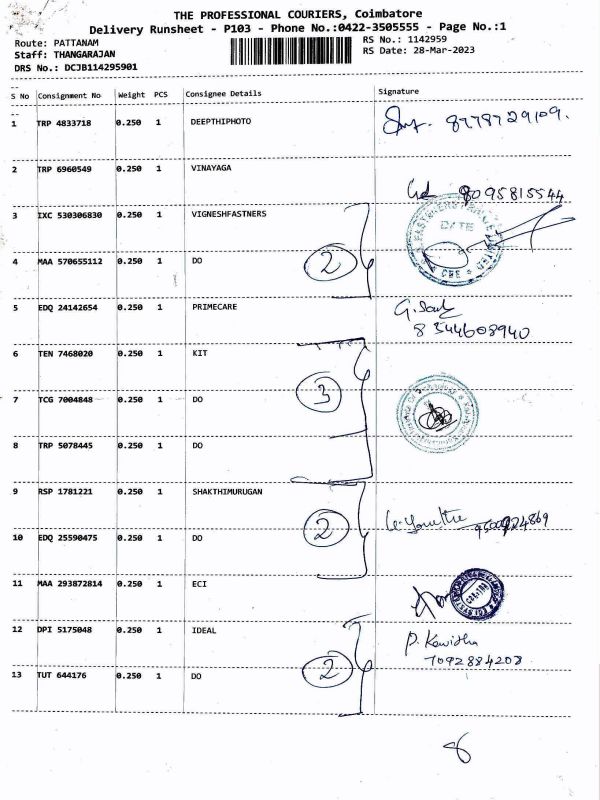 THE PROFESSIONAL COURIERS, Coimbatore
Delivery Runsheet - P103 - Phone No.:0422-3505555 - Page No.:1
Route: PATTANAM RS No.: 1142959
Staff: THANGARAJAN RS Date: 28-Mar-2023
DRS No.: DCJB114295901
S No Consignment No Weight PCS Consignee Details Signature
1 TRP 4833718 0.250 1 DEEPTHIPHOTO 8778729109.
2 TRP 6960549 0.250 1 VINAYAGA
8095815544
3 IXC 530306830 0.250 1 VIGNESHFASTNERS
DATE
4 MAA 570655112 0.250 1 DO 2
CBE
5 EDQ 24142654 0.250 1 PRIMECARE
8344608940
6 TEN 7468020 0.250 1 KIT
7 TCG 7004848 0.250 1 DO 3
8 TRP 5078445 0.250 1 DO
9 RSP 1781221 0.250 1 SHAKTHIMURUGAN
10 EDQ 25590475 0.250 1 DO 2
11 MAA 293872814 0.250 1 ECI
12 DPI 5175048 0.250 1 IDEAL P. Kavitha
7092884203
13 TUT 644176 0.250 1 DO 2
8